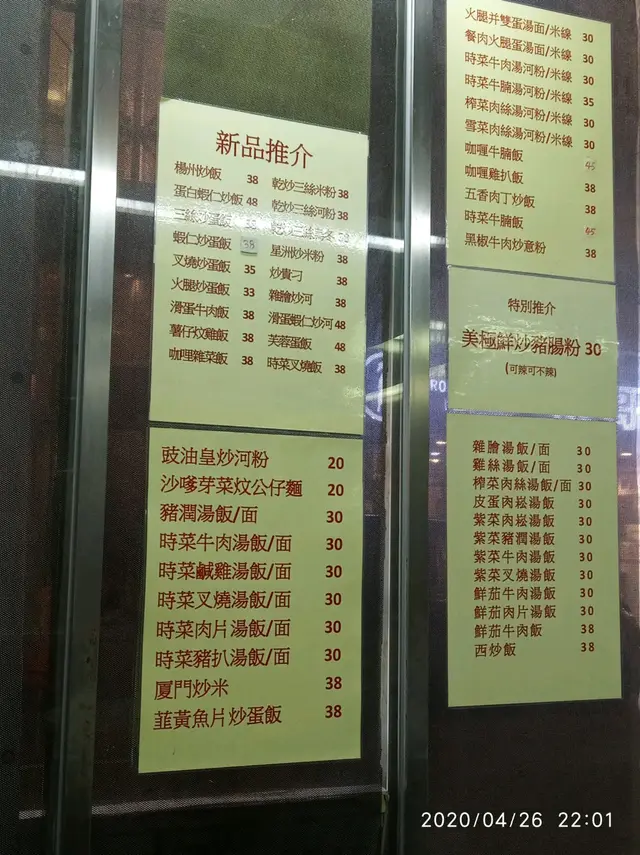 新品推介
楊州炒飯 38
蛋白蝦仁炒飯 48
三絲炒蛋飯 38
蝦仁炒蛋飯 38
叉燒炒蛋飯 35
火腿炒蛋飯 33
滑蛋牛肉飯 38
薯仔炆雞飯 38
咖哩雜菜飯 38
乾炒三絲米粉 38
乾炒三絲河粉 38
星洲炒米粉 38
炒貴刁 38
雜膾炒河 38
滑蛋蝦仁炒河 48
芙蓉蛋飯 48
時菜叉燒飯 38
豉油皇炒河粉 20
沙嗲芽菜炆公仔麵 20
豬潤湯飯/面 30
時菜牛肉湯飯/面 30
時菜鹹雞湯飯/面 30
時菜叉燒湯飯/面 30
時菜肉片湯飯/面 30
時菜豬扒湯飯/面 30
厦門炒米 38
韮黃魚片炒蛋飯 38
火腿并雙蛋湯面/米線 30
餐肉火腿蛋湯面/米線 30
時菜牛肉湯河粉/米線 30
時菜牛腩湯河粉/米線 35
榨菜肉絲湯河粉/米線 30
雪菜肉絲湯河粉/米線 30
咖喱牛腩飯 45
咖喱雞扒飯 38
五香肉丁炒飯 38
時菜牛腩飯 45
黑椒牛肉炒意粉 38
特別推介
美極鮮炒豬腸粉 30
(可辣可不辣)
雜膾湯飯/面 30
雞絲湯飯/面 30
榨菜肉絲湯飯/面 30
皮蛋肉崧湯飯 30
紫菜肉崧湯飯 30
紫菜豬潤湯飯 30
紫菜牛肉湯飯 30
紫菜叉燒湯飯 30
鮮茄牛肉湯飯 30
鮮茄肉片湯飯 30
鮮茄牛肉飯 38
西炒飯 38
2020/04/26 22:01